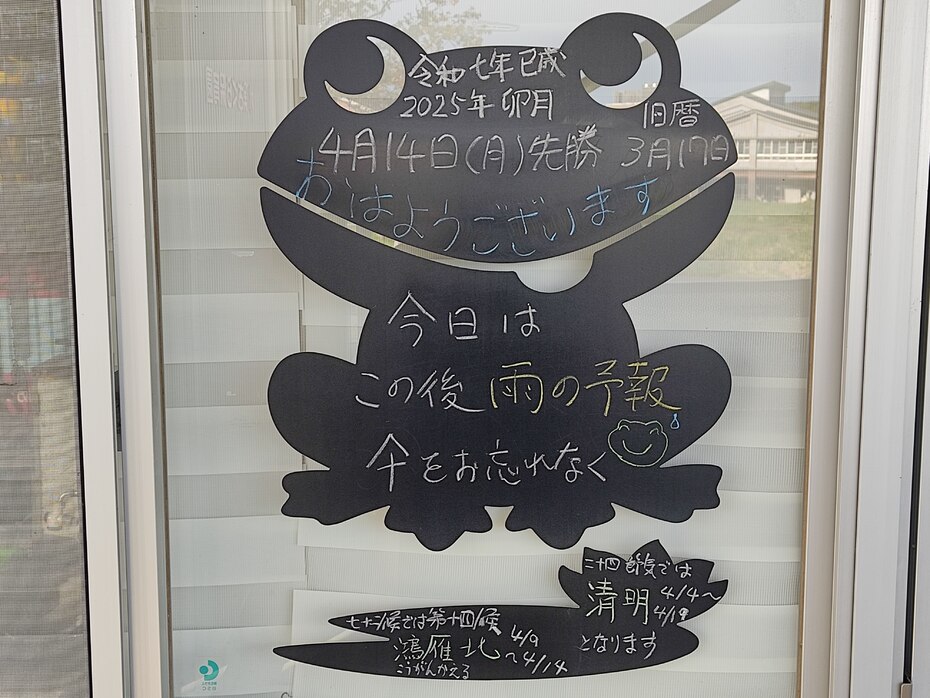 令和七年巳歳
2025年 卯月
旧暦
4月14日(月)先勝 3月17日
おはようございます
今日は
この後 雨の予報
伞をお忘れなく
二十四節気では
清明 4/4〜4/19
となります
七十二候では第十四候
鴻雁北 4/9〜4/14
こうがんかえる